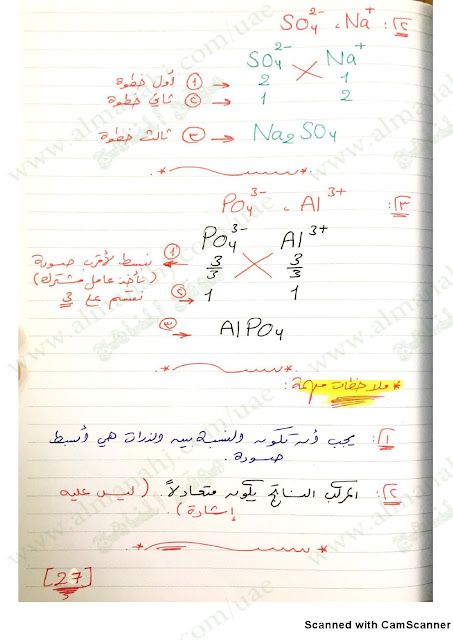 ٢: Na⁺ ، SO₄²⁻
SO₄²⁻ Na⁺
2 1 ← ① أول خطوة
1 2 ← ② ثاني خطوة
Na₂SO₄ ← ③ ثالث خطوة
٣: Al³⁺ ، PO₄³⁻
PO₄³⁻ Al³⁺
3/3 3/3 ① نبسط لأقرب صورة
(نأخذ عامل مشترك)
نقسم على 3
1 1 ②
③ → AlPO₄
* ملاحظات مهمة:
١: يجب أن تكون النسبة بين الذرات هي أبسط
صورة.
٢: المركب الناتج يكون متعادلاً. (ليس عليه
إشارة).
[27]
www.almanahj.com/uae
موقع المناهج
Scanned with CamScanner